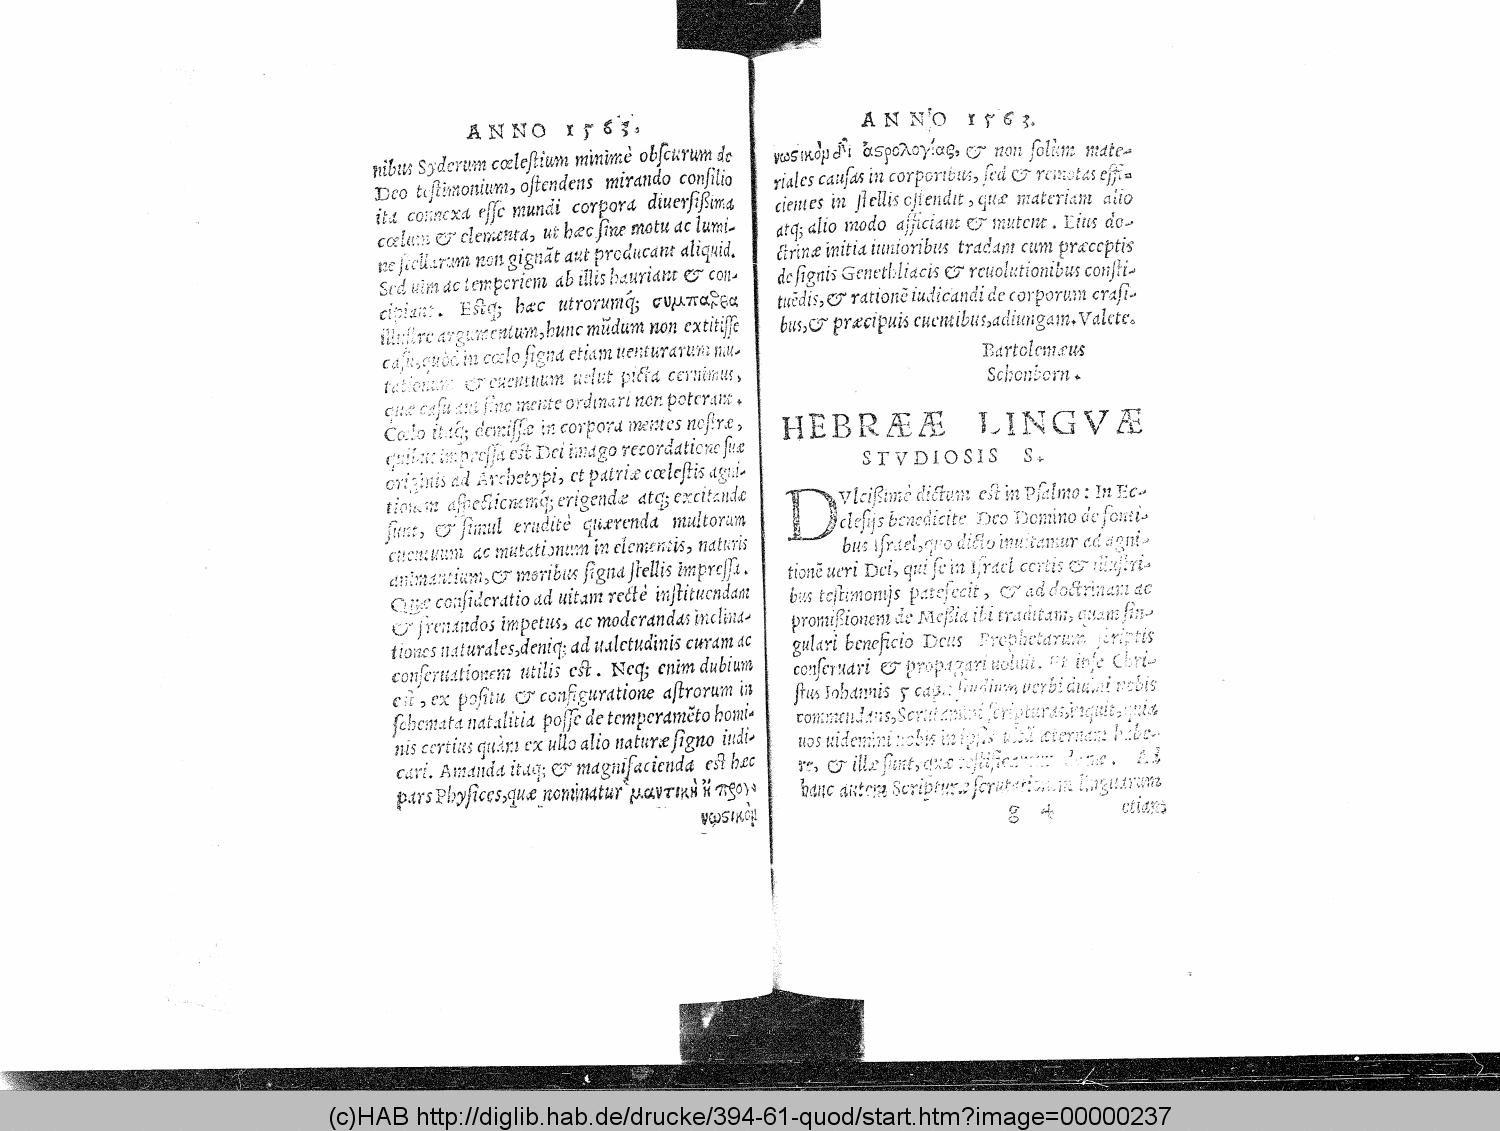 ANNO 1563.
nibus Syderum cœlestium minimè obscurum de
Deo testimonium, ostendens mirando consilio
ita connexa esse mundi corpora diuersißima
cœlum & elementa, ut hæc sine motu ac lumi-
ne stellarum non gignãt aut producant aliquid.
Sed uim ac temperiem ab illis hauriant & con-
cipiant. Estq; hæc utrorumq́;
illustre argumentum, hunc mũdum non extitisse
casu, quòd in cœlo signa etiam uenturarum mu-
tationum & euentuum uelut picta cernimus,
quæ casu aut sine mente ordinari non poterant.
Cœlo itaq; demissæ in corpora mentes nostræ,
quibus impressa est Dei imago recordatione suæ
originis ad Archetypi, et patriæ cœlestis agni-
tionem aspectionemq́; erigendæ atq; excitandæ
sunt, & simul eruditè quærenda multorum
euentuum ac mutationum in elementis, naturis
animantium, & moribus signa stellis impressa.
Quæ consideratio ad uitam rectè instituendam
& frenandos impetus, ac moderandas inclina-
tiones naturales, deniq; ad ualetudinis curam ac
conseruationem utilis est. Neq; enim dubium
est, ex positu & configuratione astrorum in
schemata natalitia posse de temperamẽto homi-
nis certius quàm ex ullo alio naturæ signo iudi-
cari. Amanda itaq; & magnifacienda est hæc
pars Physices, quæ nominatur μαντικὴ ἢ προγ
νωστικὸμ
ANNO 1563.
νωστικὸμ δὶ ἀστρολογίας, & non solùm mate-
riales causas in corporibus, sed & remotas effi-
cientes in stellis ostendit, quæ materiam alio
atq; alio modo afficiant & mutent. Eius do-
ctrinæ initia iunioribus tradam cum præceptis
de signis Genethliacis & reuolutionibus consti-
tuẽdis, & rationẽ iudicandi de corporum crasi-
bus, & præcipuis euentibus, adiungam. Valete.
Bartolemæus
Schonborn.
HEBRÆÆ LINGVÆ
STVDIOSIS S.
DVlcißimè dictum est in Psalmo: In Ec-
clesijs benedicite Deo Domino de fonti-
bus Israel, quo dicto inuitamur ad agni-
tionẽ ueri Dei, qui se in Israel certis & illustri-
bus testimonijs patefecit, & ad doctrinam ac
promißionem de Meßia ibi traditam, quam sin-
gulari beneficio Deus Prophetarum scriptis
conseruari & propagari uoluit. Et ipse Chri-
stus Iohannis 5 cap. studium verbi diuini nobis
commendans, Scrutamini scripturas, inquit, quia
uos uidemini uobis in ipsis uitã æternam habe-
re, & illæ sunt, quæ testificantur de me. Ad
hanc autem Scripturæ scrutationem linguarum
g 4 etiam
(c)HAB http://diglib.hab.de/drucke/394-61-quod/start.htm?image=00000237